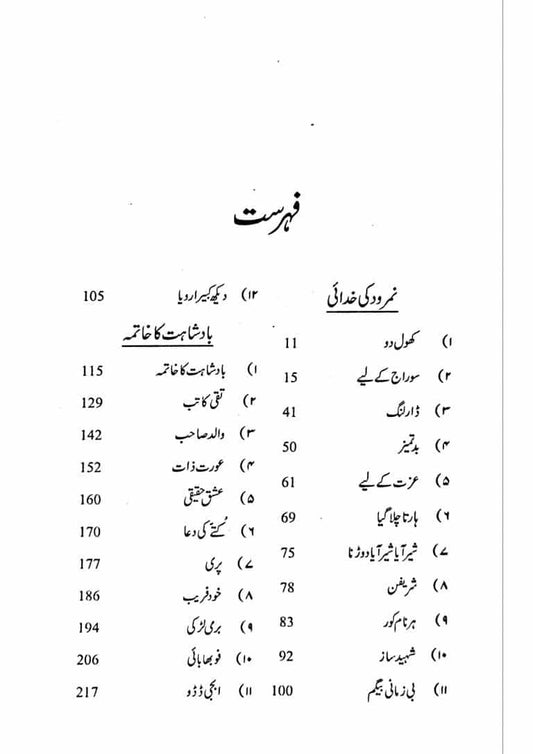 فہرست
نمرود کی خدائی
۱) کھول دو 11
۲) سوراج کے لیے 15
۳) ڈارلنگ 41
۴) بدتمیز 50
۵) عزت کے لیے 61
۶) ہارتا چلا گیا 69
۷) شیر آیا شیر آیا دوڑنا 75
۸) شریفن 78
۹) ہرنام کور 83
۱۰) شہید ساز 92
۱۱) بی زمانی بیگم 100
۱۲) دیکھ کبیرا رویا 105
بادشاہت کا خاتمہ
۱) بادشاہت کا خاتمہ 115
۲) تقی کاتب 129
۳) والد صاحب 142
۴) عورت ذات 152
۵) عشق حقیقی 160
۶) کُتے کی دعا 170
۷) پری 177
۸) خود فریب 186
۹) برمی لڑکی 194
۱۰) فوبھا بائی 206
۱۱) ابجی ڈڈو 217